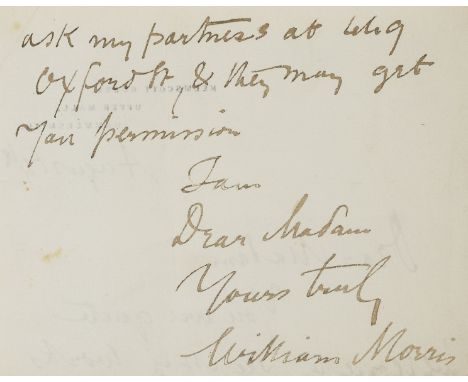 ask my partners at 449
Oxford St, & they may get
you permission
I am
Dear Madam
Yours truly
William Morris